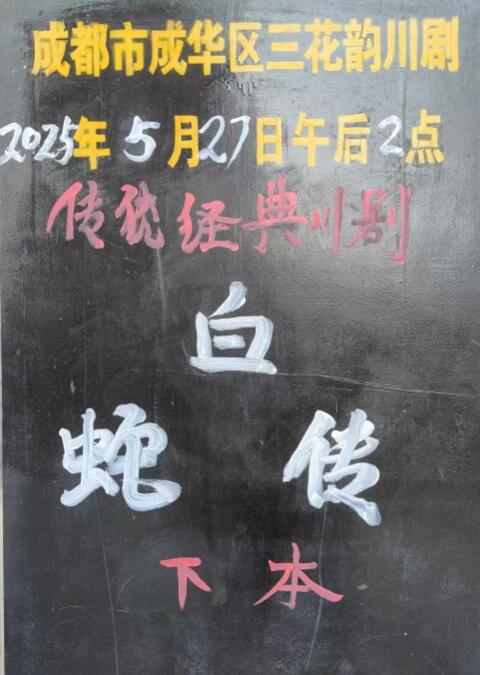 成都市成华区三花韵川剧
2025年5月27日午后2点
传统经典川剧
白
蛇传
下本